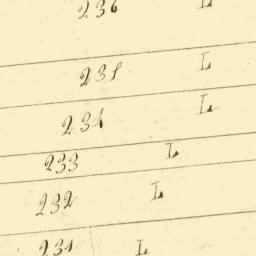 236 L
235 L
234 L
233 L
232 L
231 L